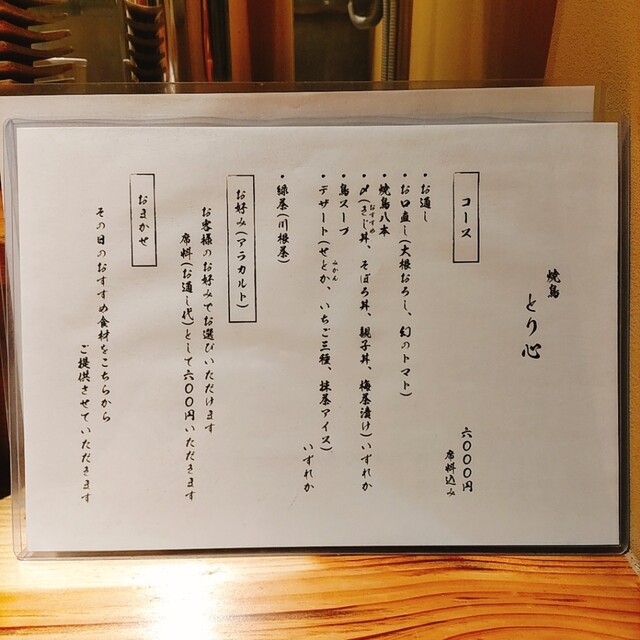 焼鳥
とり心
コース
六〇〇〇円
席料込み
・お通し
・お口直し(大根おろし、幻のトマト)
・焼鳥八本
おすすめ
・〆(きじ丼、そぼろ丼、親子丼、梅茶漬け)いずれか
・鳥スープ
みかん
・デザート(せとか、いちご三種、抹茶アイス)
いずれか
・緑茶(川根茶)
お好み(アラカルト)
お客様のお好みでお選びいただけます
席料(お通し代)として六〇〇円いただきます
おまかせ
その日のおすすめ食材をこちらから
ご提供させていただきます